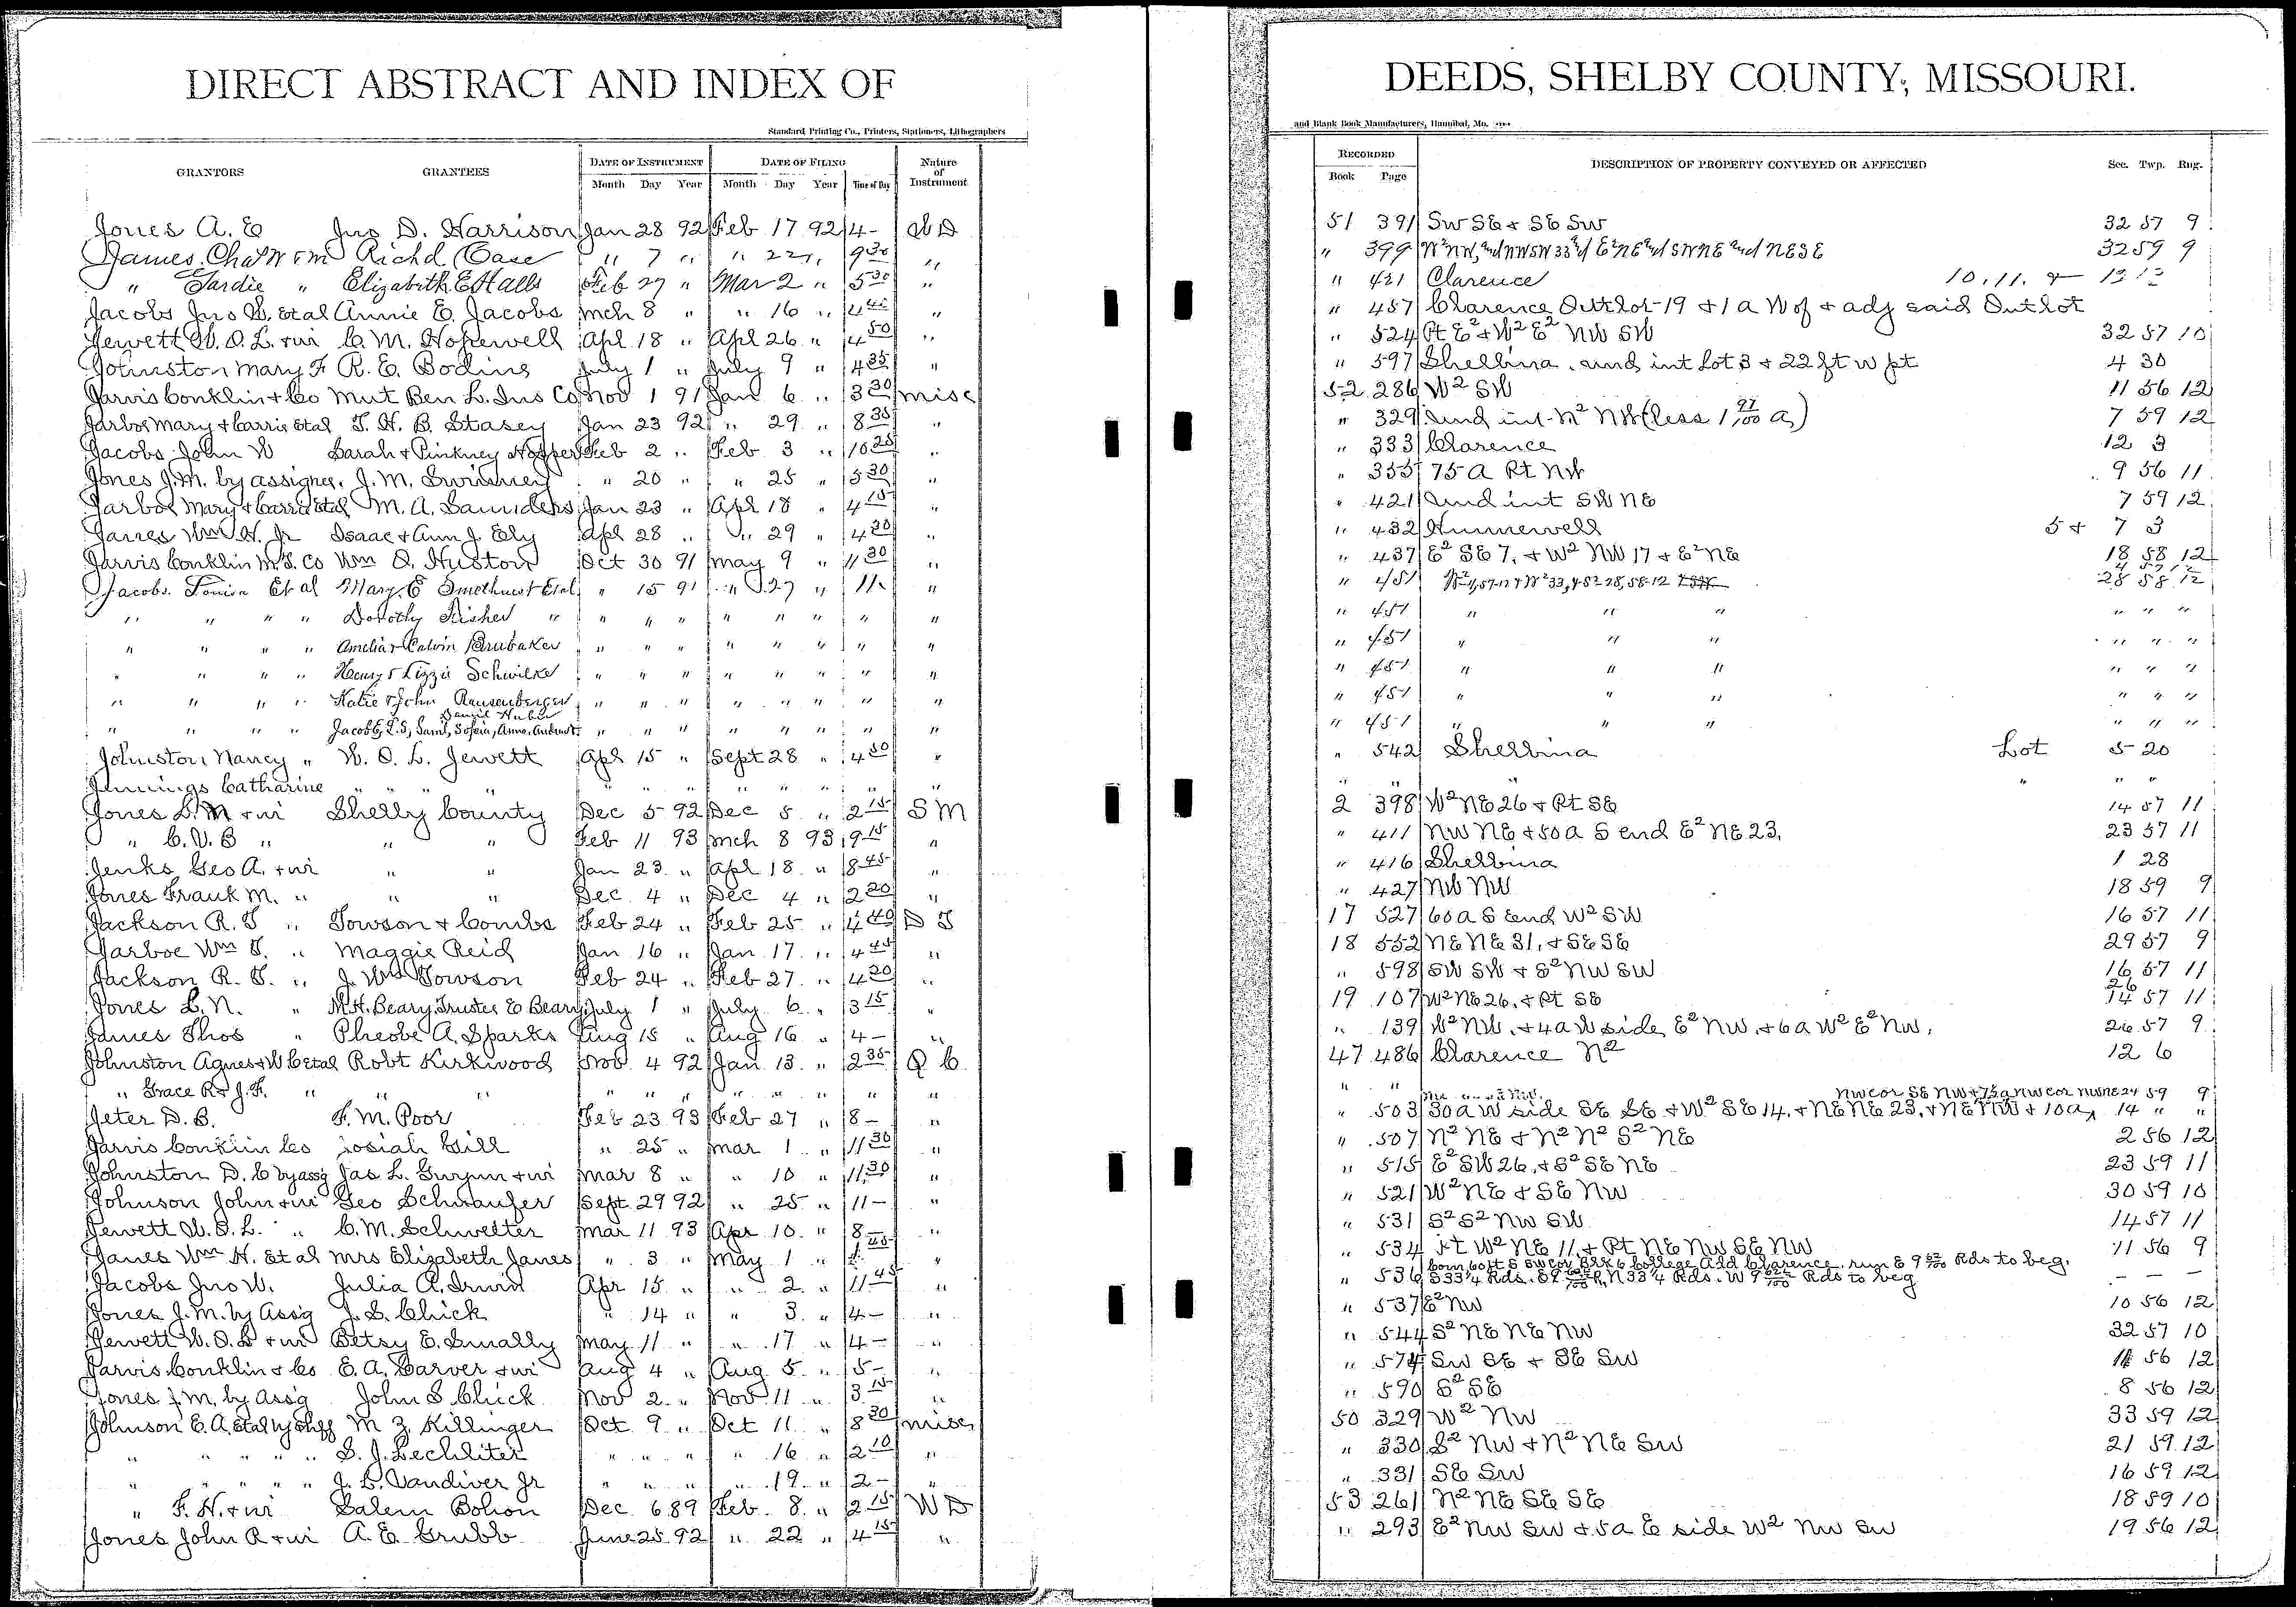 DIRECT ABSTRACT AND INDEX OF
Standard Printing Co., Printers, Stationers, Lithographers
GRANTORS GRANTEES DATE OF INSTRUMENT DATE OF FILING Nature of Instrument
Month Day Year Month Day Year Time of Day
Jones A. E Jno D. Harrison Jan 28 92 Feb 17 92 4-
James Richd Case " 7 " " 22 " 9 30 "
" Tardie " Elizabeth E Halls Feb 27 " Mar 2 " 5 30 "
Jacobs Jno W. etal Annie E. Jacobs Mch 8 " " 16 " 4 40 "
Jewett W. O. L. + wi C. M. Hopewell Apl 18 " Apl 26 " 4 50 "
Johnston Mary F R. E. Bodine July 1 " July 9 " 4 35 "
Jarvis Conklin + Co Mut Ben L. Ins Co Nov 1 91 Jan 6 " 3 30 Misc
Jarboe Mary + Carrie etal T. H. B. Stasey Jan 23 92 " 29 " 8 35 "
Jacobs John W Sarah + Pinkney Hopper Feb 2 " Feb 3 " 10 25 "
Jones J. M. by assignee. J. M. Swinney " 20 " " 25 " 5 30 "
Jarboe Mary + Carrie etal M. A. Saunders Jan 23 " Apl 18 " 4 15 "
Janes Wm H. Jr Isaac + Ann J. Ely Apl 28 " " 29 " 4 30 "
Jarvis Conklin M. T. Co Wm O. Huston Oct 30 91 May 9 " 11 30 "
Jacobs Louisa Et al Mary E Smethurst Etal " 15 91 " 27 " 11 "
" " " " Dorothy Fisher " " " " " " " " "
" " " " Amelia + Calvin Brubaker " " " " " " " "
" " " " Henry + Lizzie Schwilke " " " " " " " "
" " " " Katie + John Rausenberger " " " " " " " "
Daniel Huber
" " " " Jacob E, L. S, Saml, Sofeia, Anna, " " " " " " " "
Johnston Nancy " W. O. L. Jewett Apl 15 " Sept 28 " 4 30 "
Jennings Catharine " " " " " " " " " " "
Jones L. M + wi Shelby County Dec 5 92 Dec 5 " 2 15 S M
" C. V. B " " " Feb 11 93 Mch 8 93 9 15 "
Jenks Geo A. + wi " " Jan 23 " Apl 18 " 8 45 "
Jones Frank M. " " " Dec 4 " Dec 4 " 2 20 "
Jackson R. T " Towson + Combs Feb 24 " Feb 25 " 4 40 D T
Jarboe Wm T. " Maggie Reid Jan 16 " Jan 17 " 4 45 "
Jackson R. T. " J. Wm Towson Feb 24 " Feb 27 " 4 20 "
Jones L. N. " M. H. Beary, Trustee E Beary July 1 " July 6 " 3 15 "
James Thos " Pheobe A. Sparks Aug 15 " Aug 16 " 4- "
Johnston Agnes + W C etal Robt Kirkwood Nov 4 92 Jan 13 " 2 35 Q C
" Grace R + J. F. " " " " " " " " " "
Jeter D. B. F. M. Poor Feb 23 93 Feb 27 " 8- "
Jarvis Conklin Co Josiah Gill " 25 " Mar 1 " 11 30 "
Johnston D. C by assg Jas L. Gwynn + wi Mar 8 " " 10 " 11 30 "
Johnson John + wi Geo Schwaufer Sept 29 92 " 25 " 11- "
Jewett W. O. L. " C. M. Schwetter Mar 11 93 Apr 10 " 8- "
Janes Wm H. Et al Mrs Elizabeth Janes " 3 " May 1 " "
Jacobs Jno W. Julia A. Irwin Apr 15 " " 2 " 11 45 "
Jones J. M. by Assg J. S. Chick " 14 " " 3 " 4- "
Jewett W. O. L + wi Betsy E. Smally May 11 " " 17 " 4- "
Jarvis Conklin + Co E. A. Carver + wi Aug 4 " Aug 5 " 5- "
Jones J. M. by Assg John S Chick Nov 2 " Nov 11 " 3 15 "
Johnson E. A. etal by Shff M Z. Killinger Oct 9 " Oct 11 " 8 30 Misc
" " " " " S. J. Lechliter " " " " 16 " 2 10 "
" " " " " J. L. Vandiver Jr " " " " 19 " 2- "
" F. H. + wi Salem Bohon Dec 6 89 Feb 8 " 2 15 W D
Jones John R + wi A. E. Grubb June 25 92 " 22 " 4 15 "
DEEDS, SHELBY COUNTY, MISSOURI.
and Blank Book Manufacturers, Hannibal, Mo.
RECORDED DESCRIPTION OF PROPERTY CONVEYED OR AFFECTED Sec. Twp. Rng.
Book Page
51 391 SW SE + SE SW 32 57 9
" 399 W2 NW, and NWSW 33 and E2 NE and SWNE and NESE 32 59 9
" 421 Clarence 10. 11. +
" 457 Clarence Outlot 19 + 1 a W of + adj said Outlot
" 524 Pt E2 + W2 E2 NW SW 32 57 10
" 597 Shelbina. und int Lot 3 + 22 ft w pt 4 30
52 286 W2 SW 11 56 12
" 329 und int N2 NW (less 1 97/100 a) 7 59 12
" 333 Clarence 12 3
" 355 75 a Pt NW 9 56 11
" 421 und int SW NE 7 59 12
" 432 Hunnewell 5 + 7 3
" 437 E2 SE 7, + W2 NW 17 + E2 NE 18 58 12
" 451 28 58 12
" 451 " " " " " "
" 451 " " " " " "
" 451 " " " " " "
" 451 " " " " " "
" 451 " " " " " "
" 542 Shelbina Lot 5 20
" " " " " " "
2 398 W2 NE 26 + Pt SE 14 57 11
" 411 NW NE + 50 a S end E2 NE 23, 23 57 11
" 416 Shelbina 1 28
" 427 NW NW 18 59 9
17 527 60 a S End W2 SW 16 57 11
18 552 NE NE 31, + SE SE 29 57 9
" 598 SW SW + S2 NW SW 16 57 11
26
19 107 W2 NE 26, + Pt SE 14 57 11
" 139 W2 NW, + 4 a W side E2 NW, + 6 a W2 E2 NW, 26 57 9
47 486 Clarence N2 12 6
" "
NW cor SE NW + 7½ a NW cor NWNE 24 59 9
" 503 30 a W side SE SE + W2 SE 14, + NE NE 23, + NE NW + 10 a, 14 " "
" 507 N2 NE + N2 N2 S2 NE 2 56 12
" 515 E2 SW 26, + S2 SE NE 23 59 11
" 521 W2 NE + SE NW 30 59 10
" 531 S2 S2 NW SW 14 57 11
" 534 Pt W2 NE 11, + Pt NE NW SE NW 11 56 9
Com 60 ft S SW cor Blk 6 College Add Clarence. run E 9 62/100 Rds to beg.
" 536 S 33¼ Rds. E 9 62/100 R, N 33¼ Rds. W 9 62/100 Rds to beg - - -
" 537 E2 NW 10 56 12
" 544 S2 NE NE NW 32 57 10
" 574 SW SE + SE SW 11 56 12
" 590 S2 SE 8 56 12
50 329 W2 NW 33 59 12
" 330 S2 NW + N2 NE SW 21 59 12
" 331 SE SW 16 59 12
53 261 N2 NE SE SE 18 59 10
" 293 E2 NW SW + 5 a E side W2 NW SW 19 56 12